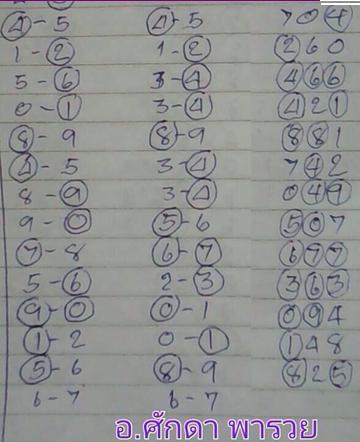 4-5 4-5 704
1-2 1-2 260
5-6 3-4 466
0-1 3-4 421
8-9 8-9 881
4-5 3-4 742
8-9 3-4 049
9-0 5-6 507
7-8 6-7 677
5-6 2-3 363
9-0 0-1 094
1-2 0-1 148
5-6 8-9 825
6-7 6-7
อ.ศักดา พารวย